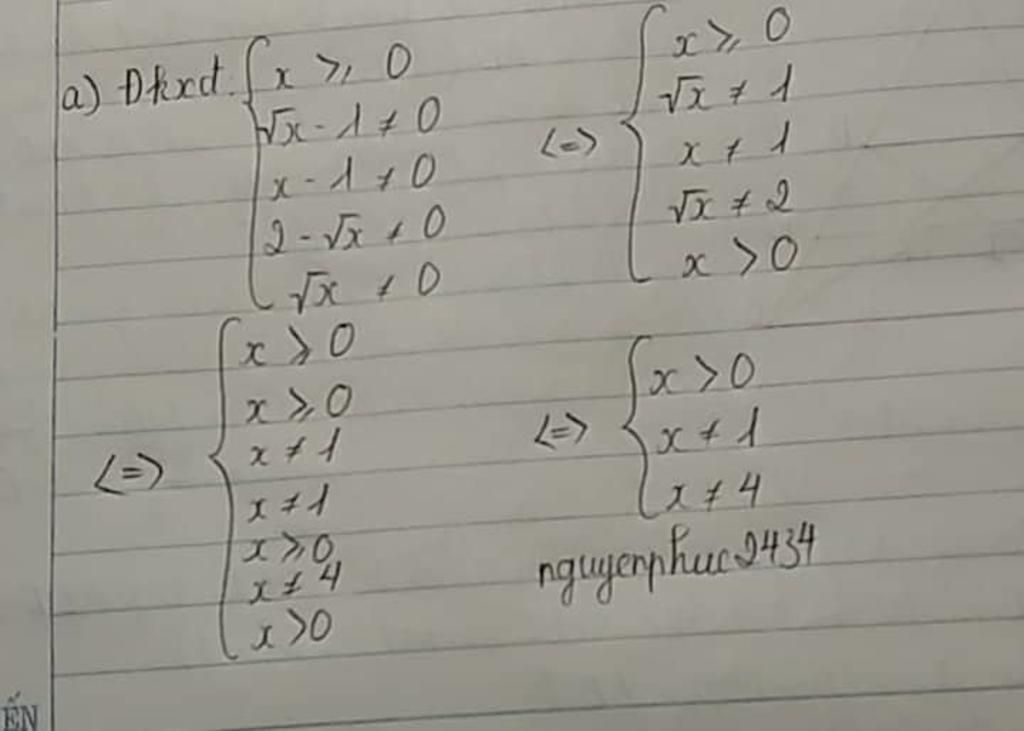 a) Đkxđ. { x ⩾ 0
√x - 1 ≠ 0
x - 1 ≠ 0
2 - √x ≠ 0
√x ≠ 0
<=> { x ⩾ 0
√x ≠ 1
x ≠ 1
√x ≠ 2
x > 0
<=> { x ⩾ 0
x ⩾ 0
x ≠ 1
x ≠ 1
x ⩾ 0
x ≠ 4
x > 0
<=> { x > 0
x ≠ 1
x ≠ 4
nguyenphuc2434
ẾN